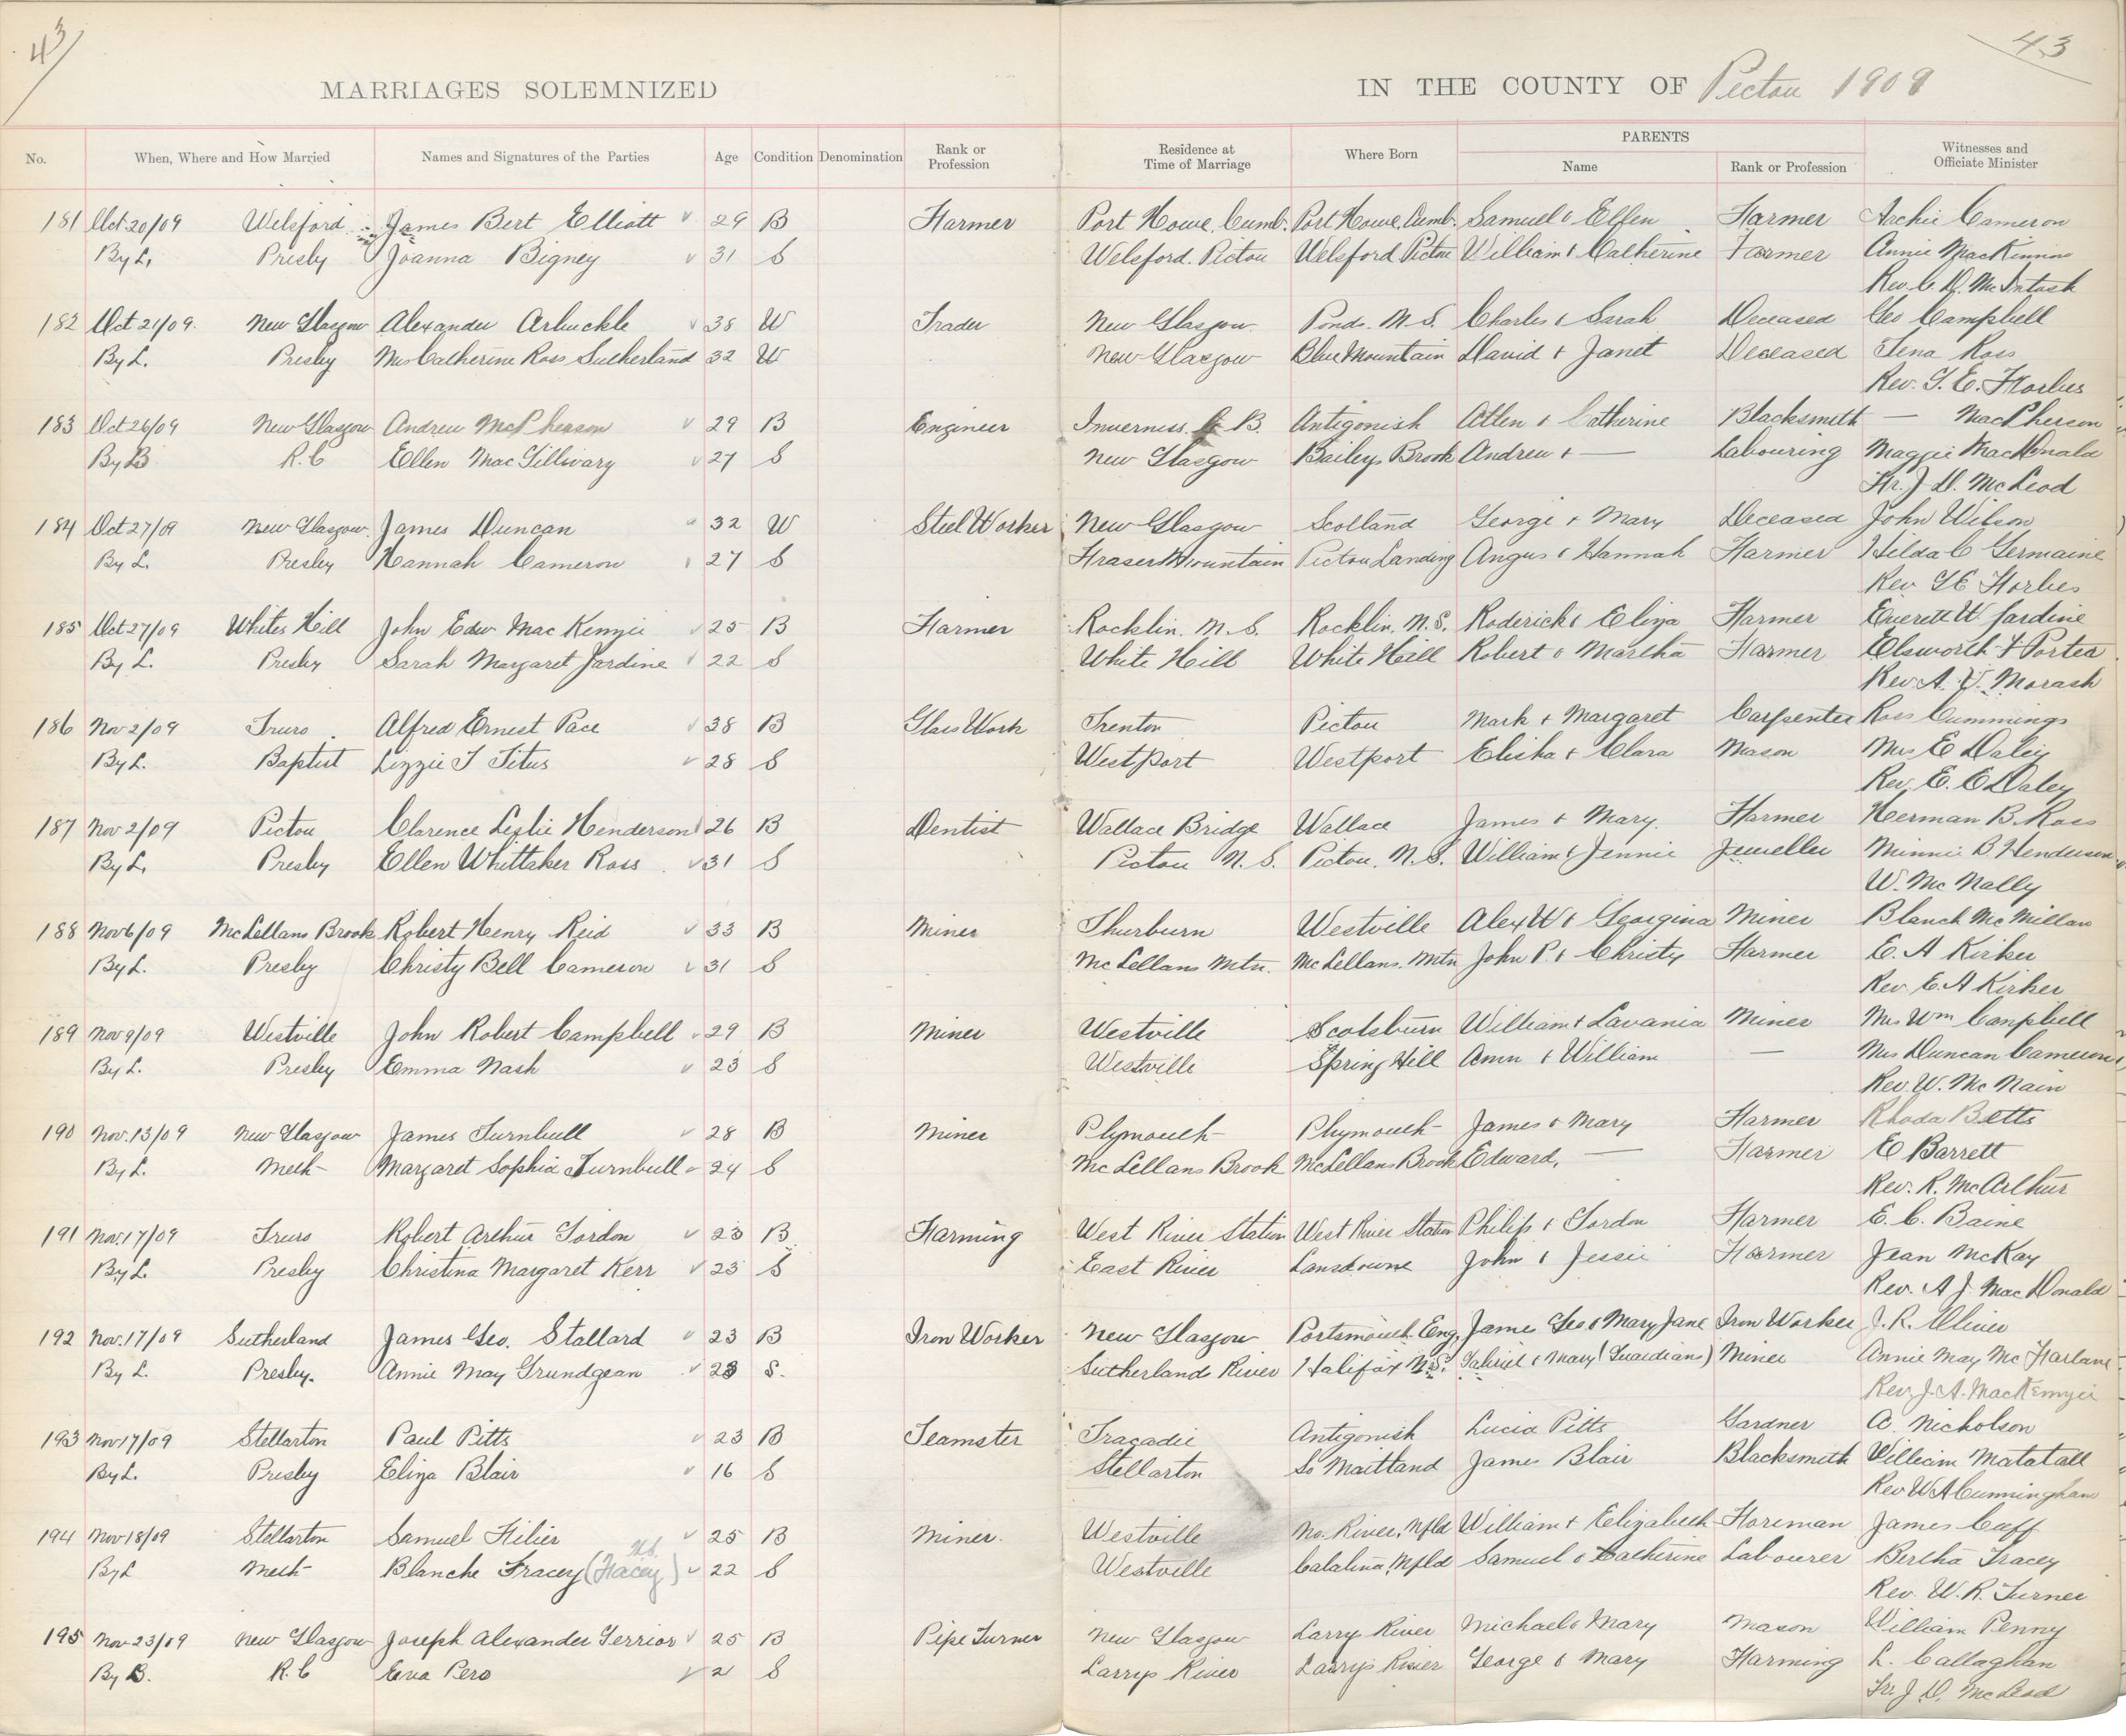 43 43
MARRIAGES SOLEMNIZED IN THE COUNTY OF Pictou 1909
No. When, Where and How Married Names and Signatures of the Parties Age Condition Denomination Rank or Profession Residence at Time of Marriage Where Born PARENTS Name Rank or Profession Witnesses and Officiate Minister
181 Oct 20/09 Welsford James Bert Elliott 29 B Farmer Port Howe, Cumb. Port Howe, Cumb. Samuel & Ellen Farmer Archie Cameron
By L. Presby Joanna Bigney 31 S Welsford. Pictou Welsford Pictou William & Catherine Farmer Annie MacKinnon
Rev. C. D. McIntosh
182 Oct 21/09. New Glasgow Alexander Arbuckle 38 W Trader New Glasgow Ponds. N.S. Charles & Sarah Deceased Geo Campbell
By L. Presby Mrs Catherine Ross Sutherland 32 W New Glasgow Blue Mountain David & Janet Deceased Tena Ross
Rev. G. E. Forbes
183 Oct 26/09 New Glasgow Andrew McPherson 29 B Engineer Inverness. C. B. Antigonish Allen & Catherine Blacksmith — MacPherson
By B R.C Ellen MacGillivary 27 S New Glasgow Baileys Brook Andrew & — Labouring Maggie MacDonald
Fr. J. D. McLeod
184 Oct 27/09 New Glasgow. James Duncan 32 W Steel Worker New Glasgow Scotland George & Mary Deceased John Wilson
By L. Presby Hannah Cameron 27 S Fraser Mountain Pictou Landing Angus & Hannah Farmer Hilda C Germaine
Rev G E Forbes
185 Oct 27/09 Whites Hill John Edw MacKenzie 25 B Farmer Rocklin. N.S. Rocklin. N.S. Roderick & Eliza Farmer Everett W Jardine
By L. Presby Sarah Margaret Jardine 22 S White Hill White Hill Robert & Martha Farmer Elsworth F Porter
Rev A. V. Morash
186 Nov 2/09 Truro Alfred Ernest Pace 38 B Glass Work Trenton Pictou Mark & Margaret Carpenter Ross Cummings
By L. Baptist Lizzie T Titus 28 S Westport Westport Elisha & Clara Mason Mrs E Daley
Rev. E. E Daley
187 Nov 2/09 Pictou Clarence Leslie Henderson 26 B Dentist Wallace Bridge Wallace James & Mary. Farmer Herman B. Ross
By L. Presby Ellen Whittaker Ross 31 S Pictou N. S. Pictou, N.S. William & Jennie Jeweller Minnie B Henderson
W. McNally
188 Nov 6/09 McLellans Brook Robert Henry Reid 33 B Miner Thurburn Westville Alex W & Georgina Miner Blanch McMillan
By L. Presby Christy Bell Cameron 31 S McLellans Mtn. McLellans. Mtn John P. & Christy Farmer E. A Kirker
Rev. E. A Kirker
189 Nov 9/09 Westville John Robert Campbell 29 B Miner Westville Scotsburn William & Lavania Miner Mrs Wm Campbell
By L. Presby Emma Nash 23 S Westville Spring Hill Ann & William — Mrs Duncan Cameron
Rev. W. McNain
190 Nov. 13/09 New Glasgow James Turnbull 28 B Miner Plymouth Plymouth James & Mary Farmer Rhoda Betts
By L. Meth Margaret Sophia Turnbull 24 S McLellans Brook McLellans Brook Edward, — Farmer E Barrett
Rev. R. McArthur
191 Nov. 17/09 Truro Robert Arthur Gordon 23 B Farming West River Station West River Station Philip & Gordon Farmer E. C. Baine
By L. Presby Christina Margaret Kerr 23 S East River Lansdowne John & Jessie Farmer Jean McKay
Rev. A J. MacDonald
192 Nov. 17/09 Sutherland James Geo. Stallard 23 B Iron Worker New Glasgow Portsmouth Eng, James Geo & Mary Jane Iron Worker J. R. Oliver
By L. Presby. Annie May Grundgean 23 S. Sutherland River Halifax N.S. Gabriel & Mary (Guardians) Miner Annie May McFarlane
Rev. J. A. MacKenzie
193 Nov 17/09 Stellarton Paul Pitts 23 B Teamster Tracadie Antigonish Lucia Pitts Gardner A. Nicholson
By L. Presby Eliza Blair 16 S Stellarton So Maitland James Blair Blacksmith William Matatall
Rev W A Cunningham
194 Nov 18/09 Stellarton Samuel Hilier 25 B Miner. Westville No. River, Nfld William & Elizabeth Foreman James Cuff
By L Meth Blanche Tracey (Tracey) 22 S Westville Catalina, Nfld Samuel & Catherine Labourer Bertha Tracey
Rev. W. R. Turner
195 Nov 23/09 New Glasgow Joseph Alexander Gerrior 25 B Pipe Turner New Glasgow Larry River Michael & Mary Mason William Penny
By B. R.C Eva Pero 21 S Larrys River Larrys River George & Mary Farming L. Callaghan
Fr. J. D. McLeod